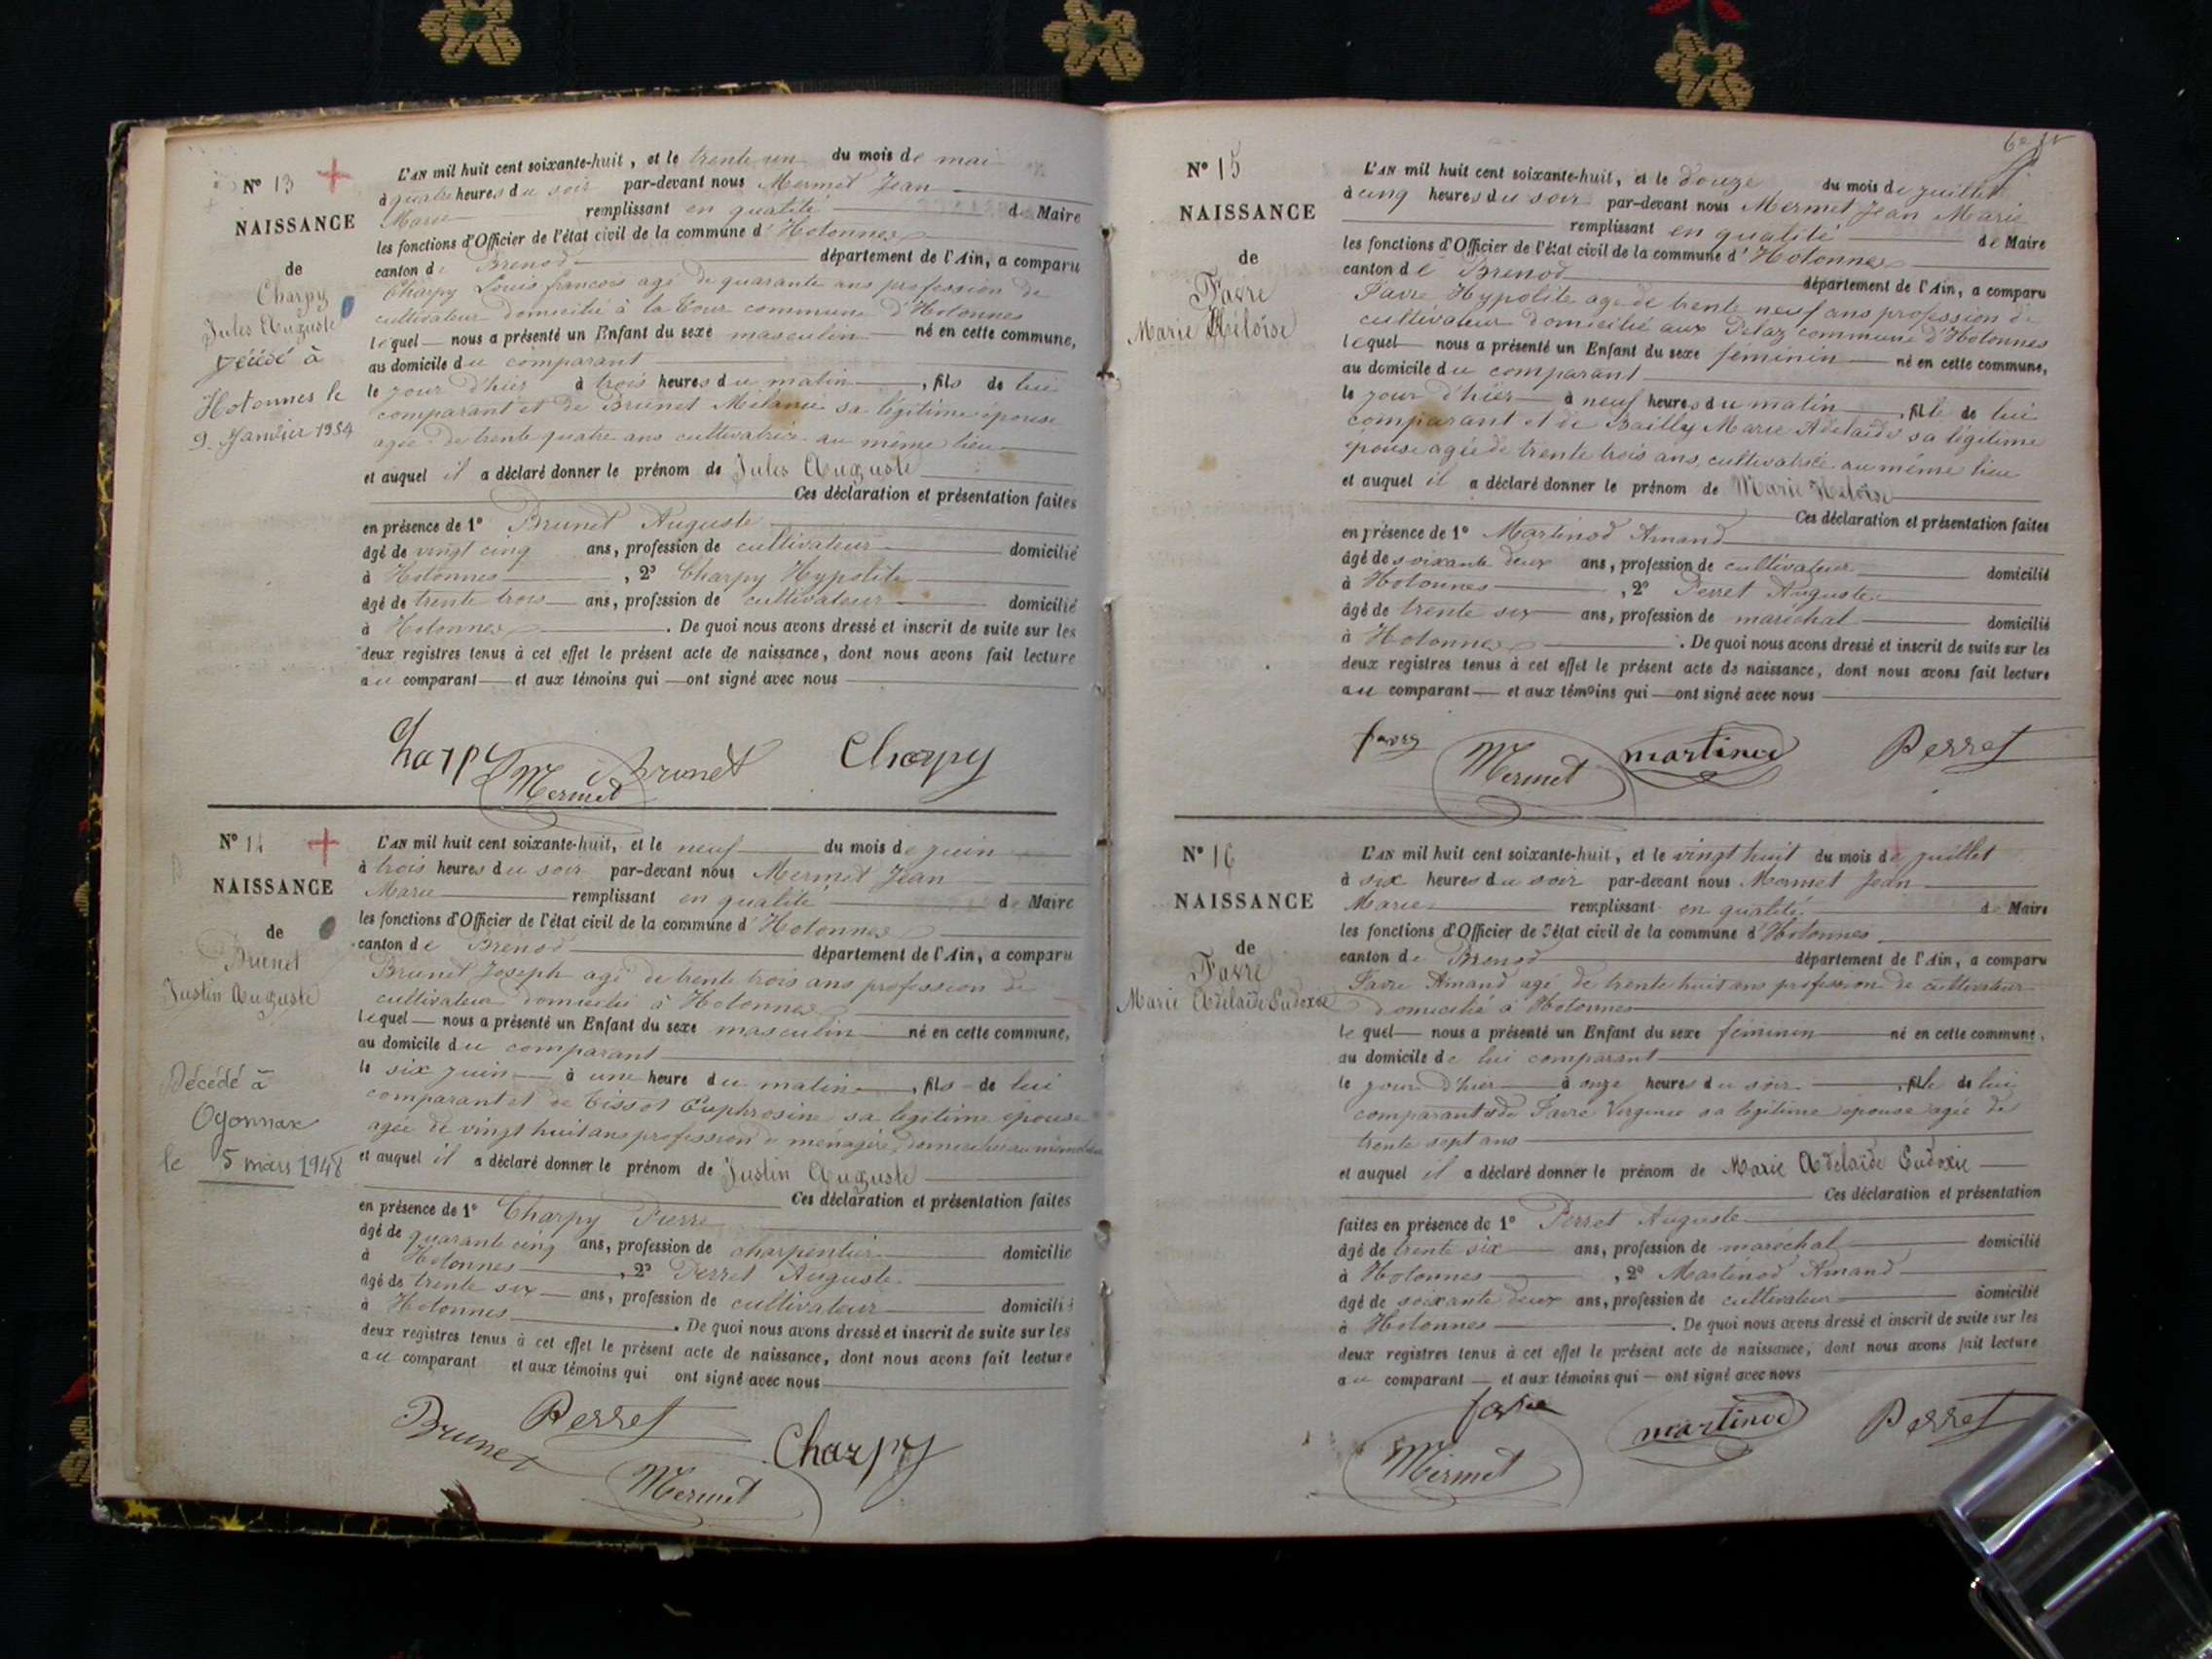 N° 13
NAISSANCE
de
Charpy
Jules Auguste
Décédé à
Hotonnes le
9 Janvier 1954
L'AN mil huit cent soixante-huit, et le trente un du mois de mai
à quatre heures du soir par-devant nous Mermet Jean
Marie remplissant en qualité de Maire
les fonctions d'Officier de l'état civil de la commune d'Hotonnes
canton de Brenod département de l'Ain, a comparu
Charpy Louis francois agé de quarante ans profession de
cultivateur domicilié à la Cour commune d'Hotonnes
lequel nous a présenté un Enfant du sexe masculin né en cette commune,
au domicile du comparant
le jour d'hier à trois heures du matin, fils de lui
comparant et de Brunet Mélanie sa légitime épouse
agée de trente quatre ans cultivatrice au même lieu
et auquel il a déclaré donner le prénom de Jules Auguste
Ces déclaration et présentation faites
en présence de 1° Brunet Auguste
âgé de vingt cinq ans, profession de cultivateur domicilié
à Hotonnes, 2° Charpy Hypolite
âgé de trente trois ans, profession de cultivateur domicilié
à Hotonnes. De quoi nous avons dressé et inscrit de suite sur les
deux registres tenus à cet effet le présent acte de naissance, dont nous avons fait lecture
au comparant et aux témoins qui ont signé avec nous
Charpy Mermet Brunet Charpy
N° 14
NAISSANCE
de
Brunet
Justin Auguste
Décédé à
Oyonnax
le 5 mars 1948
L'AN mil huit cent soixante-huit, et le neuf du mois de juin
à trois heures du soir par-devant nous Mermet Jean
Marie remplissant en qualité de Maire
les fonctions d'Officier de l'état civil de la commune d'Hotonnes
canton de Brenod département de l'Ain, a comparu
Brunet Joseph agé de trente trois ans profession de
cultivateur domicilié à Hotonnes
lequel nous a présenté un Enfant du sexe masculin né en cette commune,
au domicile du comparant
le six juin à une heure du matin, fils de lui
comparant et de Tissot Euphrosine sa légitime épouse
agée de vingt huit ans profession de ménagère domiciliée au même lieu
et auquel il a déclaré donner le prénom de Justin Auguste
Ces déclaration et présentation faites
en présence de 1° Charpy Pierre
âgé de quarante cinq ans, profession de charpentier domicilié
à Hotonnes, 2° Perret Auguste
âgé de trente six ans, profession de cultivateur domicilié
à Hotonnes. De quoi nous avons dressé et inscrit de suite sur les
deux registres tenus à cet effet le présent acte de naissance, dont nous avons fait lecture
au comparant et aux témoins qui ont signé avec nous
Brunet Perret Mermet Charpy
N° 15
NAISSANCE
de
Favre
Marie Héloïse
L'AN mil huit cent soixante-huit, et le douze du mois de juillet
à cinq heures du soir par-devant nous Mermet Jean Marie
remplissant en qualité de Maire
les fonctions d'Officier de l'état civil de la commune d'Hotonnes
canton de Brenod département de l'Ain, a comparu
Favre Hypolite age de trente neuf ans profession de
cultivateur domicilié aux Delaz commune d'Hotonnes
lequel nous a présenté un Enfant du sexe féminin né en cette commune,
au domicile du comparant
le jour d'hier à neuf heures du matin, fille de lui
comparant et de Bailly Marie Adelaïde sa légitime
épouse agée de trente trois ans, cultivatrice au même lieu
et auquel il a déclaré donner le prénom de Marie Héloïse
Ces déclaration et présentation faites
en présence de 1° Martinod Amand
âgé de soixante deux ans, profession de cultivateur domicilié
à Hotonnes, 2° Perret Auguste
âgé de trente six ans, profession de maréchal domicilié
à Hotonnes. De quoi nous avons dressé et inscrit de suite sur les
deux registres tenus à cet effet le présent acte de naissance, dont nous avons fait lecture
au comparant et aux témoins qui ont signé avec nous
favre Mermet martinod Perret
N° 16
NAISSANCE
de
Favre
Marie Adelaïde Eudoxie
L'AN mil huit cent soixante-huit, et le vingt huit du mois de juillet
à six heures du soir par-devant nous Mermet Jean
Marie remplissant en qualité de Maire
les fonctions d'Officier de l'état civil de la commune d'Hotonnes
canton de Brenod département de l'Ain, a comparu
Favre Amand agé de trente huit ans profession de cultivateur
domicilié à Hotonnes
lequel nous a présenté un Enfant du sexe féminin né en cette commune,
au domicile de lui comparant
le jour d'hier à onze heures du soir, fille de lui
comparant et de Favre Virginie sa légitime épouse agée de
trente sept ans
et auquel il a déclaré donner le prénom de Marie Adelaïde Eudoxie
Ces déclaration et présentation
faites en présence de 1° Perret Auguste
âgé de trente six ans, profession de maréchal domicilié
à Hotonnes, 2° Martinod Amand
âgé de soixante deux ans, profession de cultivateur domicilié
à Hotonnes. De quoi nous avons dressé et inscrit de suite sur les
deux registres tenus à cet effet le présent acte de naissance, dont nous avons fait lecture
au comparant et aux témoins qui ont signé avec nous
favre Mermet martinod Perret